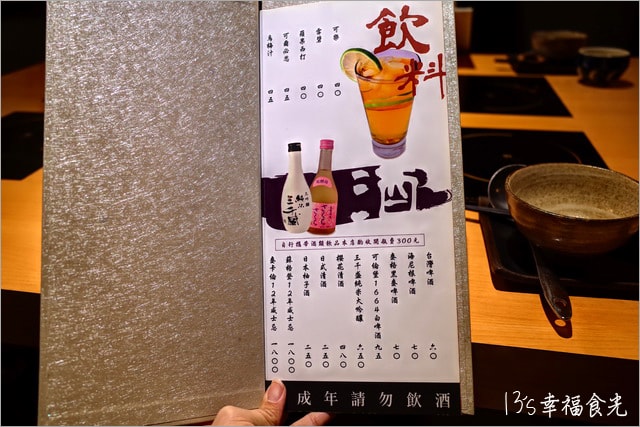 飲料
可樂 四〇
雪碧 四〇
蘋果西打 四〇
可爾必思 四五
烏梅汁 四五
酒
自行攜帶酒類飲品本店酌收開瓶費300元
台灣啤酒 六〇
海尼根啤酒 七〇
麥格黑麥啤酒 七〇
可倫堡1664白啤酒 九五
三千盛純米大吟釀 六五〇
櫻花清酒 四八〇
日式清酒 二五〇
日本柚子酒 二五〇
蘇格登12年威士忌 一八〇〇
麥卡倫12年威士忌 一八〇〇
成年請勿飲酒
13's幸福食光